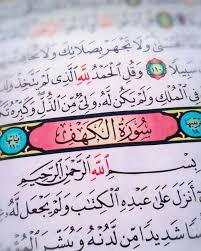 سَبِيلًا ١١٠ وَقُلِ الْحَمْدُ لِلَّهِ الَّذِي لَمْ يَتَّخِذْ وَلَدًا
فِي الْمُلْكِ وَلَمْ يَكُن لَّهُ وَلِيٌّ مِّنَ الذُّلِّ وَكَبِّرْهُ
سُورَةُ الْكَهْفِ
بِسْمِ اللَّهِ الرَّحْمَٰنِ الرَّحِيمِ
أَنزَلَ عَلَىٰ عَبْدِهِ الْكِتَٰبَ وَلَمْ يَجْعَل لَّهُ
شَدِيدًا مِّن لَّدُنْهُ وَيُبَشِّرَ